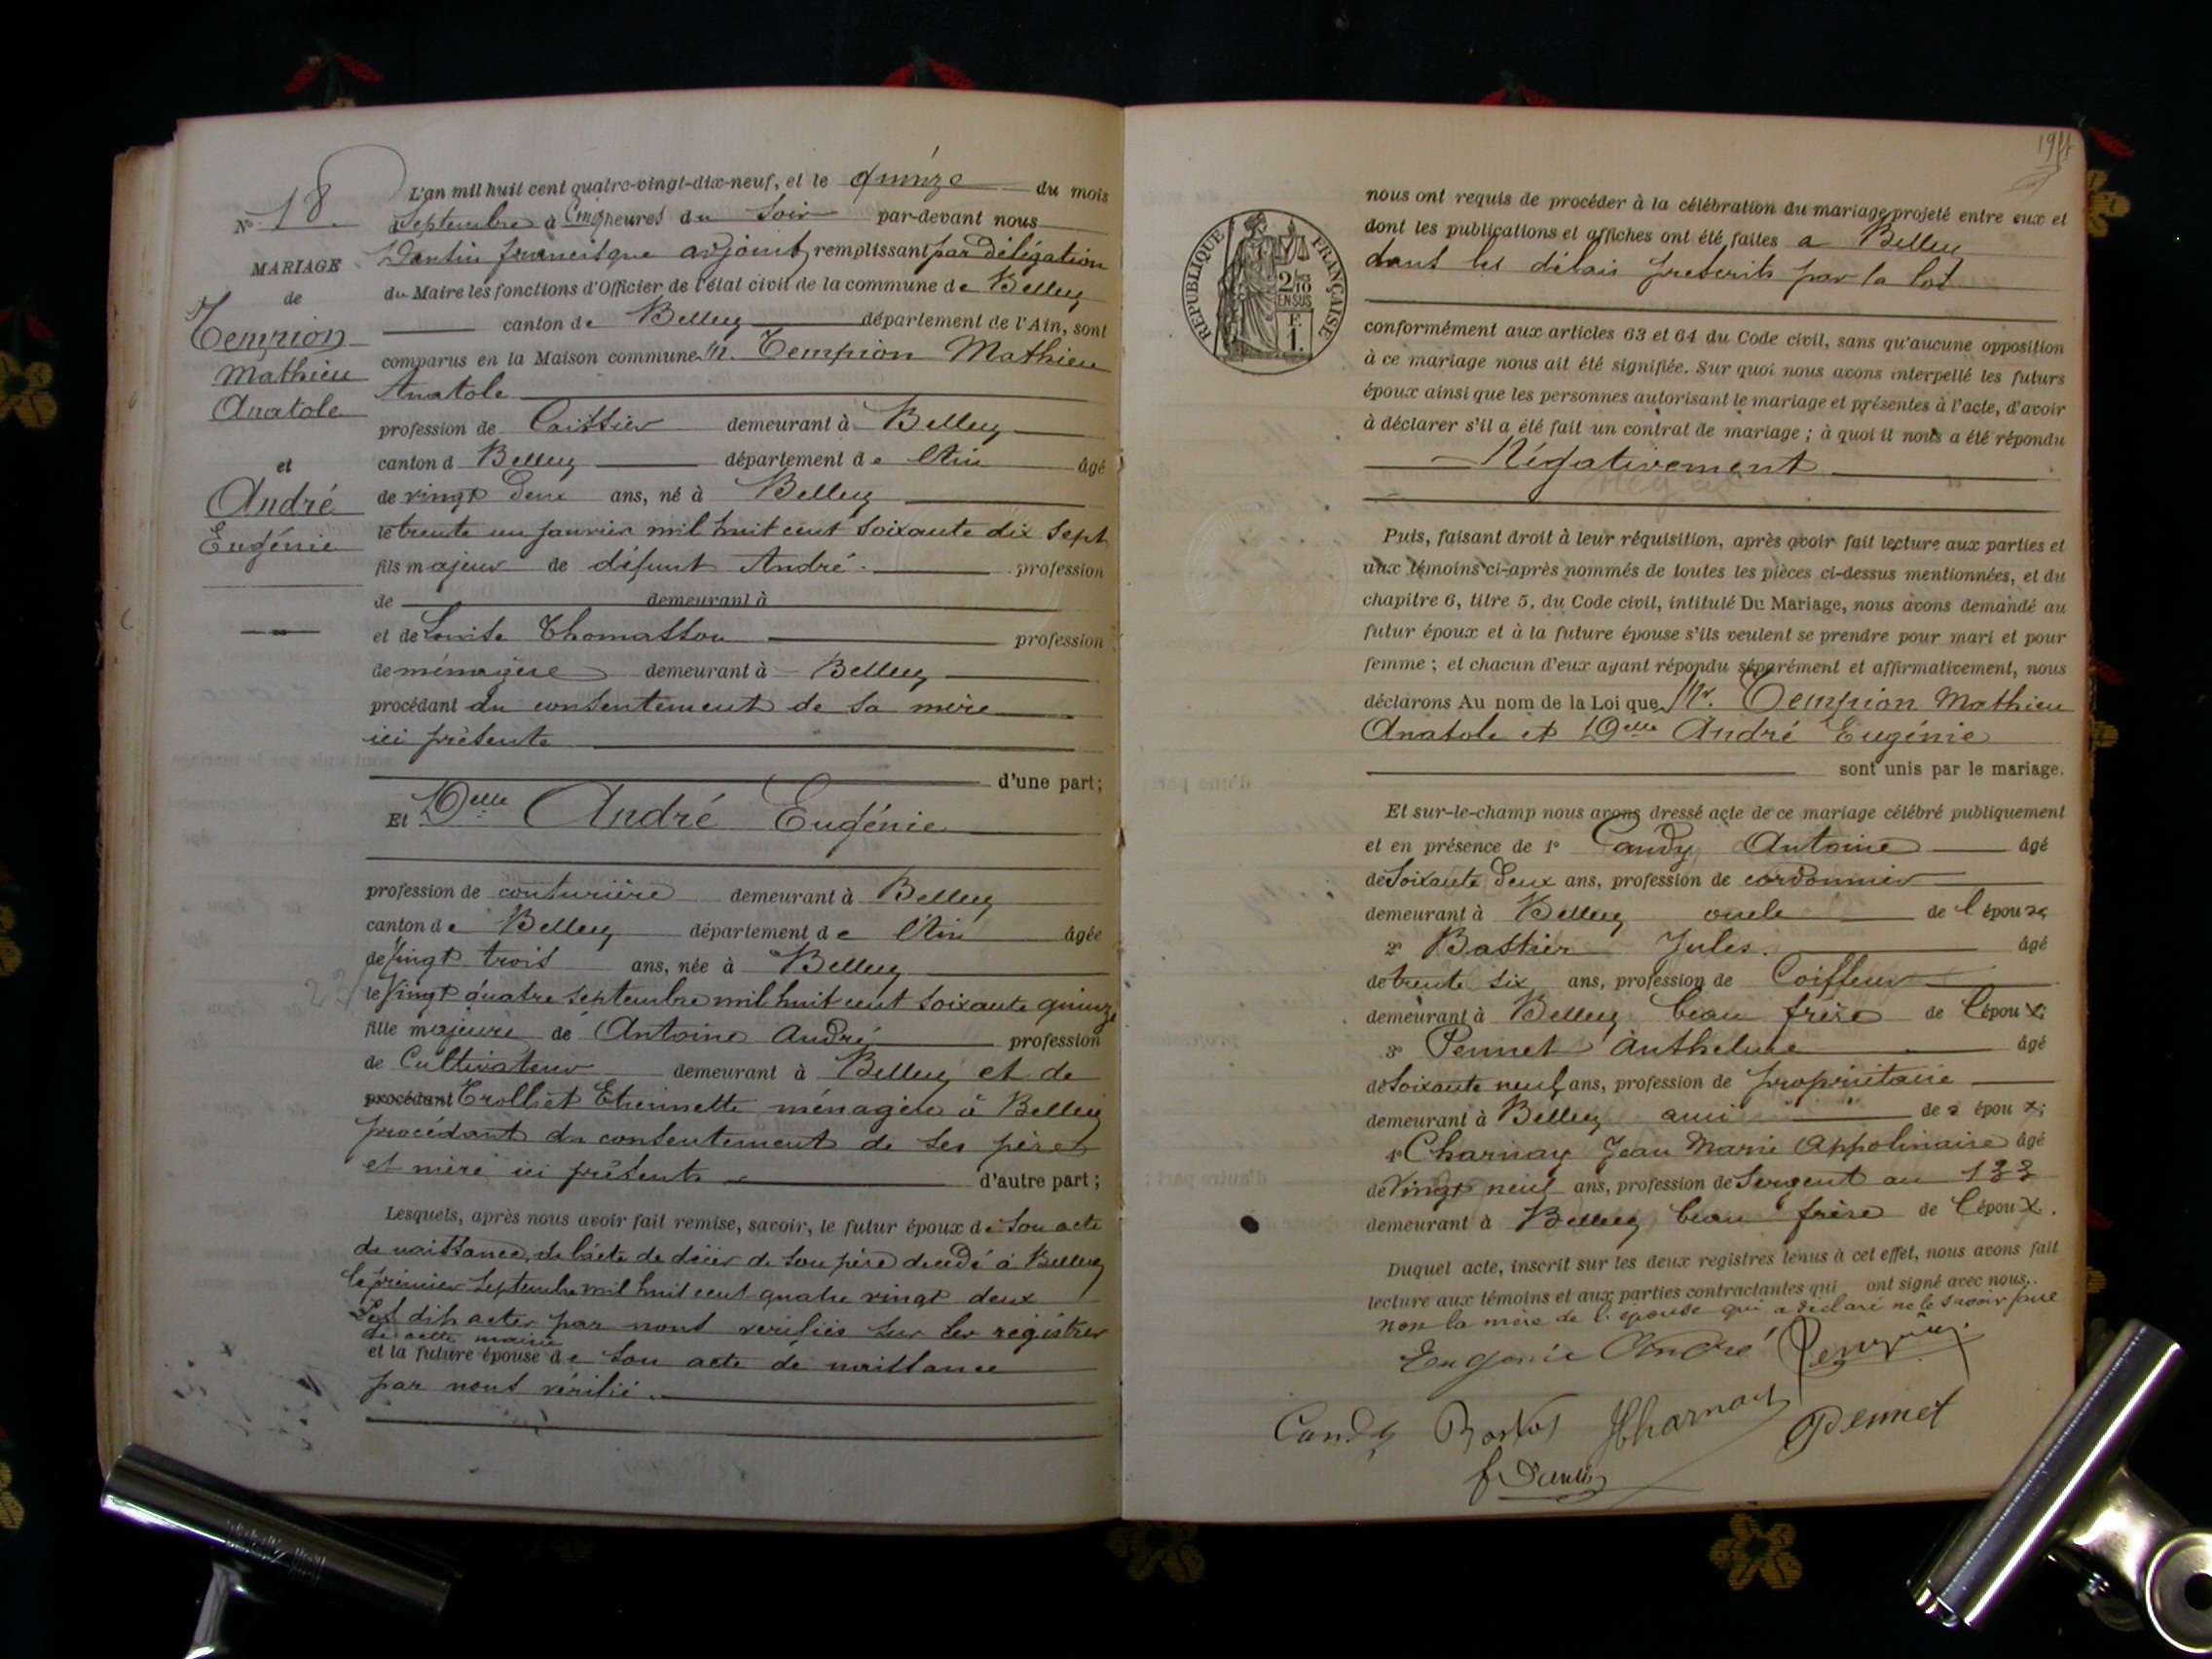 N° 18
MARIAGE
de
Tempion
Mathieu
Anatole
et
André
Eugénie
L'an mil huit cent quatre-vingt-dix-neuf, et le quinze du mois
d Septembre à Cinq heures du Soir par-devant nous
Dantin francisque adjoint, remplissant par délégation
du Maire les fonctions d'Officier de l'état civil de la commune de Belley
canton de Belley département de l'Ain, sont
comparus en la Maison commune M. Tempion Mathieu
Anatole
profession de Caissier demeurant à Belley
canton d Belley département de l'Ain âgé
de vingt deux ans, né à Belley
le trente un janvier mil huit cent soixante dix sept
fils majeur de défunt André profession
de demeurant à
et de Louise Thomasson profession
de ménagère demeurant à Belley
procédant du consentement de sa mère
ici présente
d'une part;
Et Delle André Eugénie
profession de couturière demeurant à Belley
canton de Belley département de l'Ain âgée
de Vingt trois ans, née à Belley
le Vingt quatre septembre mil huit cent soixante quinze
fille majeure de Antoine André profession
de Cultivateur demeurant à Belley et de
procédant Trolliet Etiennette ménagère à Belley
procédant du consentement de ses père
et mère ici présents d'autre part;
Lesquels, après nous avoir fait remise, savoir, le futur époux de son acte
de naissance, de l'acte de décès de son père décédé à Belley
le premier septembre mil huit cent quatre vingt deux
Les dits actes par nous vérifiés sur les registres
de cette mairie
et la future épouse de son acte de naissance
par nous vérifié.
RÉPUBLIQUE FRANÇAISE
2/10
EN SUS
F.
1.
nous ont requis de procéder à la célébration du mariage projeté entre eux et
dont les publications et affiches ont été faites a Belley
dans les délais prescrits par la loi
conformément aux articles 63 et 64 du Code civil, sans qu'aucune opposition
à ce mariage nous ait été signifiée. Sur quoi nous avons interpellé les futurs
époux ainsi que les personnes autorisant le mariage et présentes à l'acte, d'avoir
à déclarer s'il a été fait un contrat de mariage; à quoi il nous a été répondu
Négativement
Puis, faisant droit à leur réquisition, après avoir fait lecture aux parties et
aux témoins ci-après nommés de toutes les pièces ci-dessus mentionnées, et du
chapitre 6, titre 5, du Code civil, intitulé Du Mariage, nous avons demandé au
futur époux et à la future épouse s'ils veulent se prendre pour mari et pour
femme; et chacun d'eux ayant répondu séparément et affirmativement, nous
déclarons Au nom de la Loi que Mr. Tempion Mathieu
Anatole et Delle André Eugénie
sont unis par le mariage.
Et sur-le-champ nous avons dressé acte de ce mariage célébré publiquement
et en présence de 1° Candy Antoine âgé
de Soixante deux ans, profession de cordonnier
demeurant à Belley oncle de l'épouse
2° Bastier Jules. âgé
de trente six ans, profession de Coiffeur
demeurant à Belley beau frère de l'époux;
3° Pennet Anthelme âgé
de Soixante neuf ans, profession de propriétaire
demeurant à Belley ami des époux;
4° Charnay Jean Marie Appolinaire âgé
de Vingt neuf ans, profession de Sergent au 133
demeurant à Belley beau frère de l'époux.
Duquel acte, inscrit sur les deux registres tenus à cet effet, nous avons fait
lecture aux témoins et aux parties contractantes qui ont signé avec nous.
non la mère de l'épouse qui a déclaré ne le savoir faire
Eugénie André
Candy Charnay Pennet
f Dantin